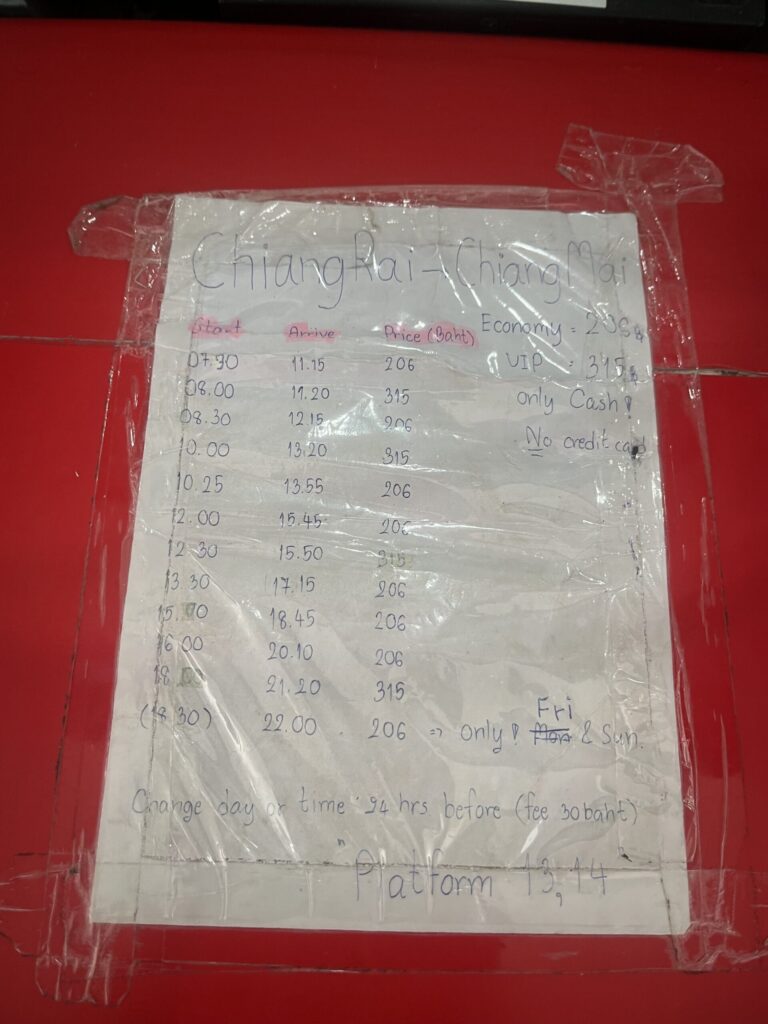 ChiangRai - Chiang Mai
Start Arrive Price (Baht) Economy = 206
07.30 11.15 206 VIP = 315
08.00 11.20 315 only Cash!
08.30 12.15 206
No credit card
10.00 13.20 315
10.25 13.55 206
12.00 15.45 206
12.30 15.50 315
13.30 17.15 206
15.00 18.45 206
16.00 20.10 206
18.00 21.20 315
Fri
(18.30) 22.00 206 => only! & Sun.
Change day or time 24 hrs before (fee 30 baht)
Platform 13, 14